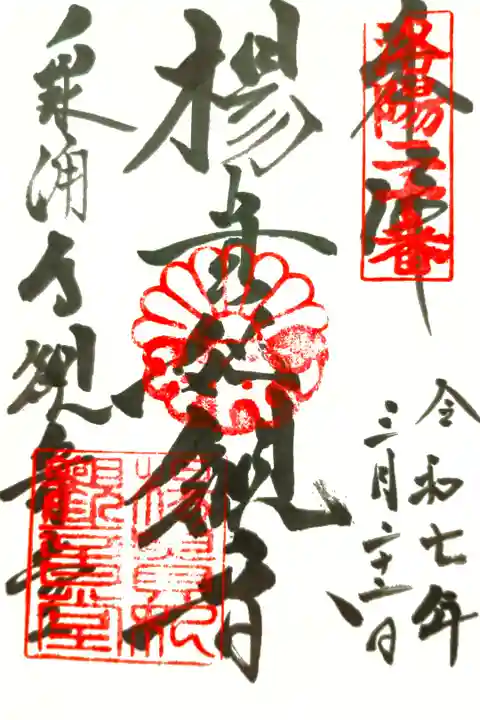 奉拝
洛陽二十番
令和七年
三月二十二日
楊貴妃観音
泉涌寺観音堂
楊貴妃
觀音堂